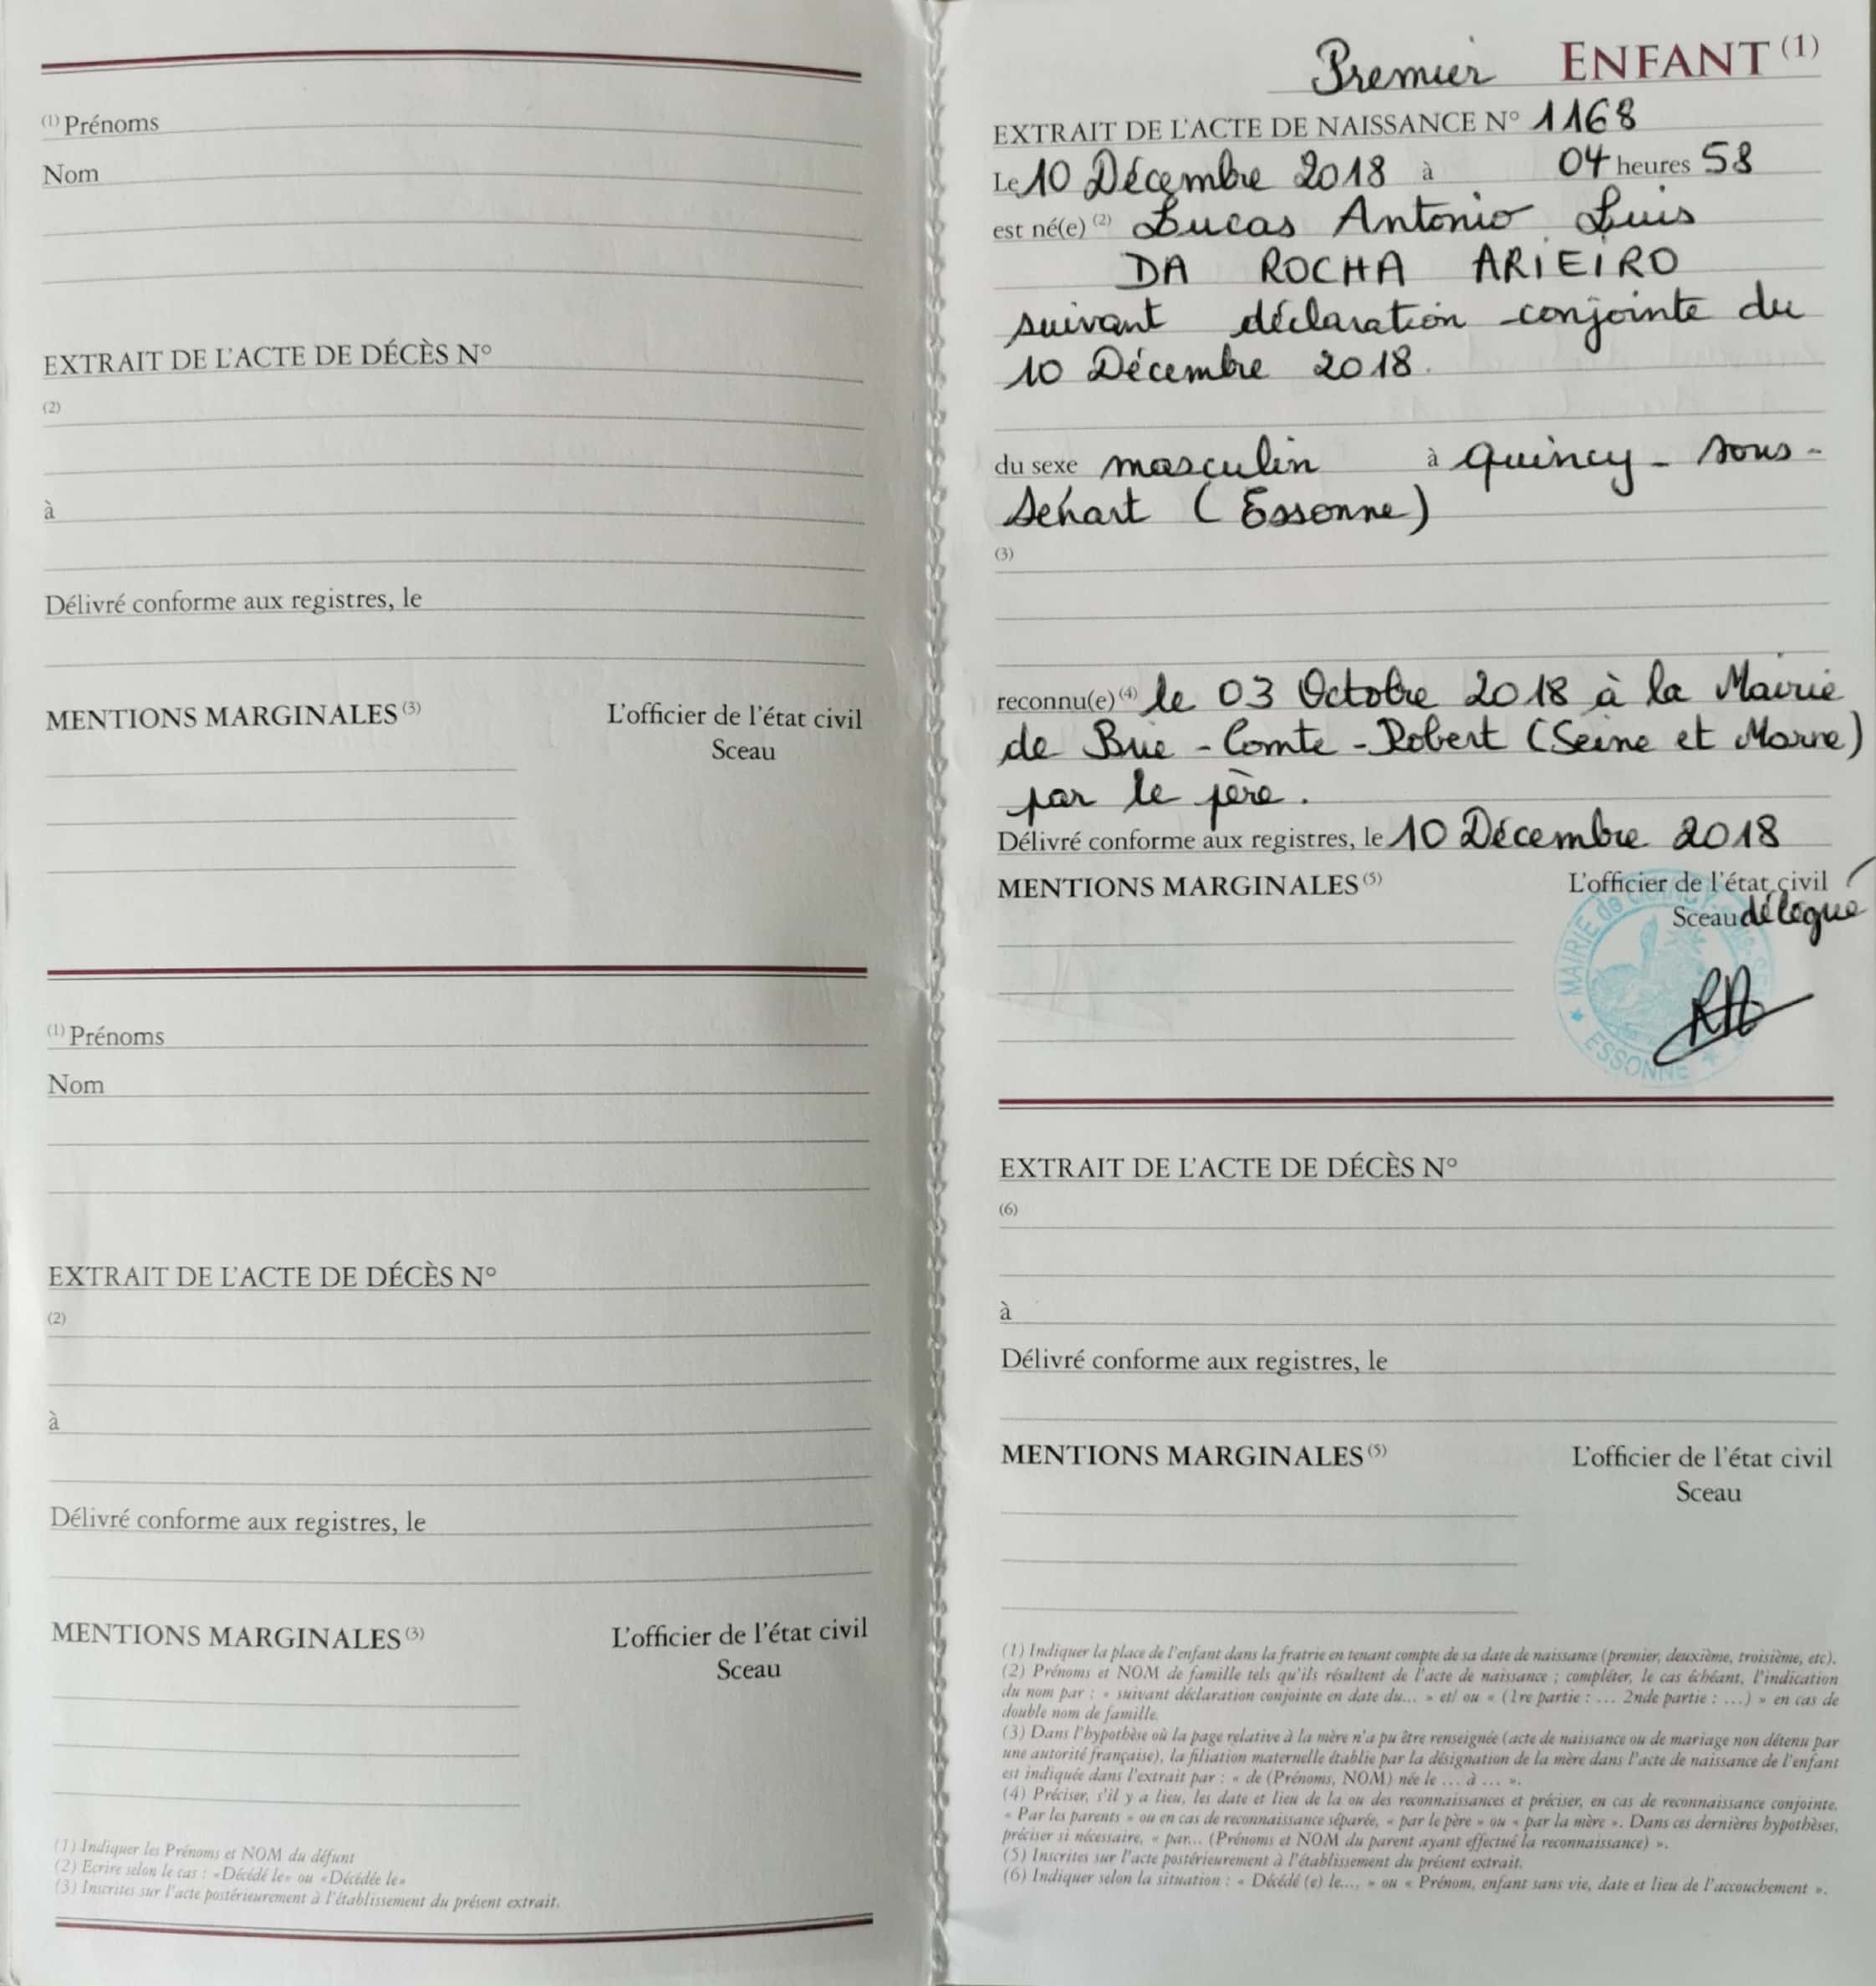 (1) Prénoms
Nom
EXTRAIT DE L'ACTE DE DÉCÈS N°
(2)
à
Délivré conforme aux registres, le
MENTIONS MARGINALES (3)
L'officier de l'état civil
Sceau
(1) Prénoms
Nom
EXTRAIT DE L'ACTE DE DÉCÈS N°
(2)
à
Délivré conforme aux registres, le
MENTIONS MARGINALES (3)
L'officier de l'état civil
Sceau
(1) Indiquer les Prénoms et NOM du défunt
(2) Ecrire selon le cas : «Décédé le» ou «Décédée le»
(3) Inscrites sur l'acte postérieurement à l'établissement du présent extrait.
Premier ENFANT (1)
EXTRAIT DE L'ACTE DE NAISSANCE N° 1168
Le 10 Décembre 2018 à 04 heures 58
est né(e) (2) Lucas Antonio Luis
DA ROCHA ARIEIRO
suivant déclaration conjointe du
10 Décembre 2018.
du sexe masculin à quincy - sous -
Sénart (Essonne)
(3)
reconnu(e) (4) le 03 Octobre 2018 à la Mairie
de Brie - Comte - Robert (Seine et Marne)
par le père.
Délivré conforme aux registres, le 10 Décembre 2018
MENTIONS MARGINALES (5)
L'officier de l'état civil
Sceau délégué
MAIRIE de QUINCY
ESSONNE
EXTRAIT DE L'ACTE DE DÉCÈS N°
(6)
à
Délivré conforme aux registres, le
MENTIONS MARGINALES (5)
L'officier de l'état civil
Sceau
(1) Indiquer la place de l'enfant dans la fratrie en tenant compte de sa date de naissance (premier, deuxième, troisième, etc).
(2) Prénoms et NOM de famille tels qu'ils résultent de l'acte de naissance ; compléter, le cas échéant, l'indication
du nom par : « suivant déclaration conjointe en date du... » et/ ou « (1re partie : ... 2nde partie : ...) » en cas de
double nom de famille.
(3) Dans l'hypothèse où la page relative à la mère n'a pu être renseignée (acte de naissance ou de mariage non détenu par
une autorité française), la filiation maternelle établie par la désignation de la mère dans l'acte de naissance de l'enfant
est indiquée dans l'extrait par : « de (Prénoms, NOM) née le ... à ... ».
(4) Préciser, s'il y a lieu, les date et lieu de la ou des reconnaissances et préciser, en cas de reconnaissance conjointe,
« Par les parents » ou en cas de reconnaissance séparée, « par le père » ou « par la mère ». Dans ces dernières hypothèses,
préciser si nécessaire, « par... (Prénoms et NOM du parent ayant effectué la reconnaissance) ».
(5) Inscrites sur l'acte postérieurement à l'établissement du présent extrait.
(6) Indiquer selon la situation : « Décédé (e) le..., » ou « Prénom, enfant sans vie, date et lieu de l'accouchement ».